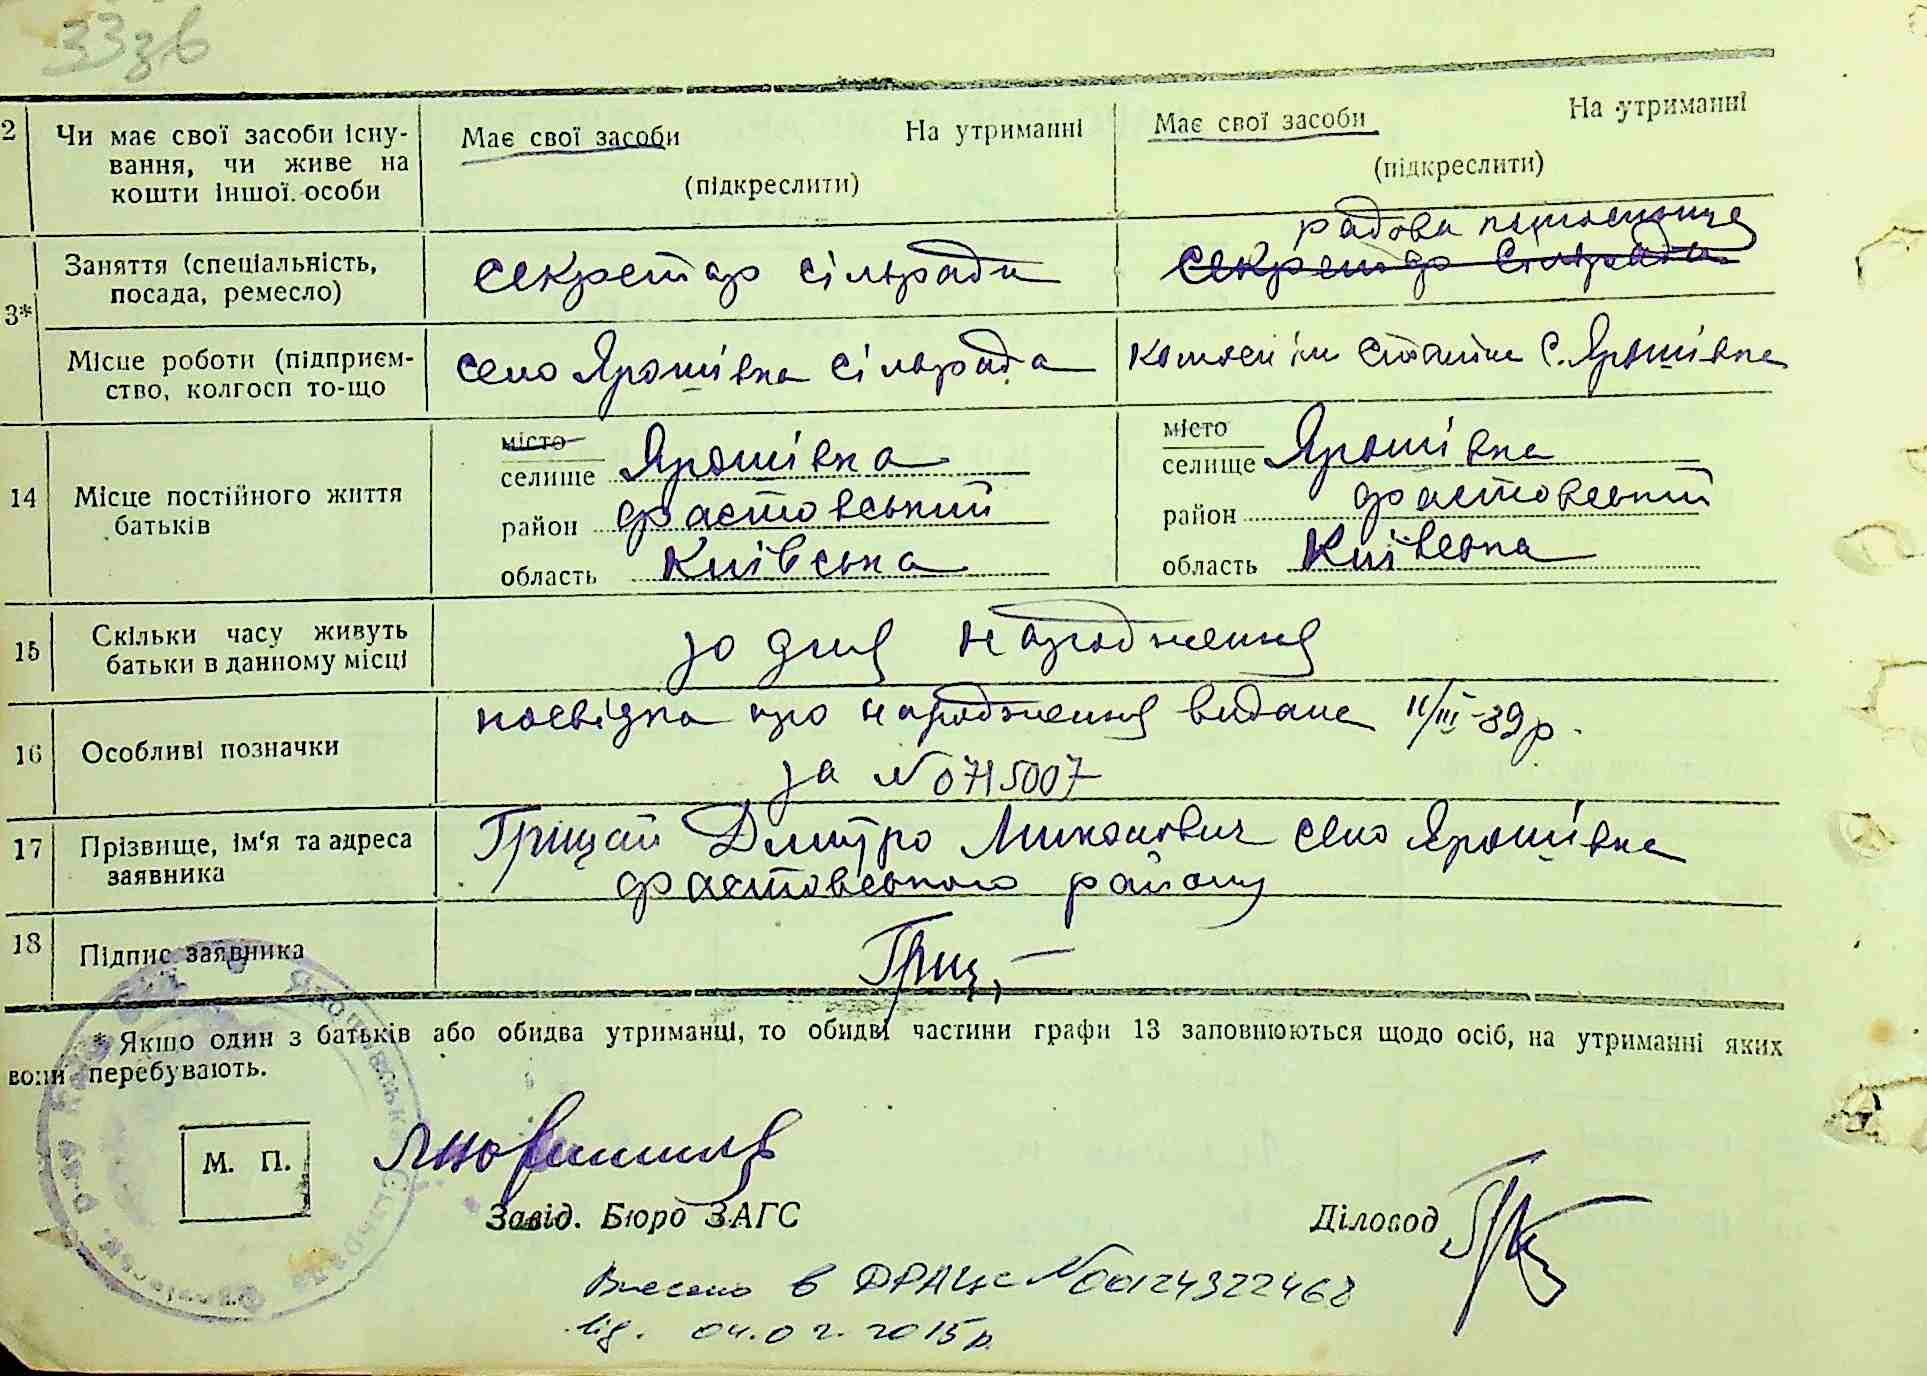 33зв
2 Чи має свої засоби існу-
вання, чи живе на
кошти іншої особи
Має свої засоби На утриманні
(підкреслити)
Має свої засоби На утриманні
(підкреслити)
3*
Заняття (спеціальність,
посада, ремесло)
секретар сільради
рядова
секретар сільради
Місце роботи (підприєм-
ство, колгосп то-що
село Ярошівка сільрада
колгосп ім Сталіна с. Ярошівка
14 Місце постійного життя
батьків
місто
селище Ярошівка
район фастовський
область Київська
місто
селище Ярошівка
район фастовський
область Київська
15 Скільки часу живуть
батьки в данному місці
зо дня народження
16 Особливі позначки
посвідка про народження видана 11/III-39р.
за №0715007
17 Прізвище, ім‘я та адреса
заявника
Грицай Дмитро Миколович село Ярошівка
фастовського району
18 Підпис заявника
Гриц
* Якшо один з батьків або обидва утриманці, то обидві частини графи 13 заповнюються щодо осіб, на утриманні яких
вони перебувають.
М. П.
Завід. Бюро ЗАГС
Діловод
Внесено в ДРАЦС №00124322468
від. 04.02.2015р.